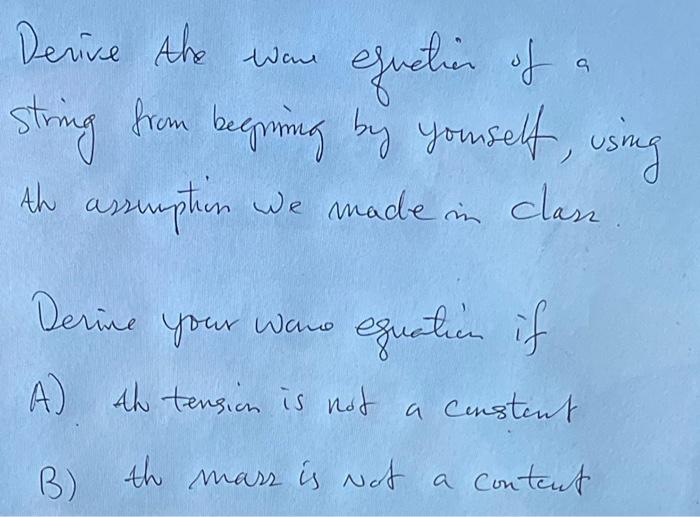 Derive the wave equation of a
string from begining by yourself, using
the assumption we made in class.
Derive your wave equation if
A) the tension is not a constant
B) the mass is not a contant